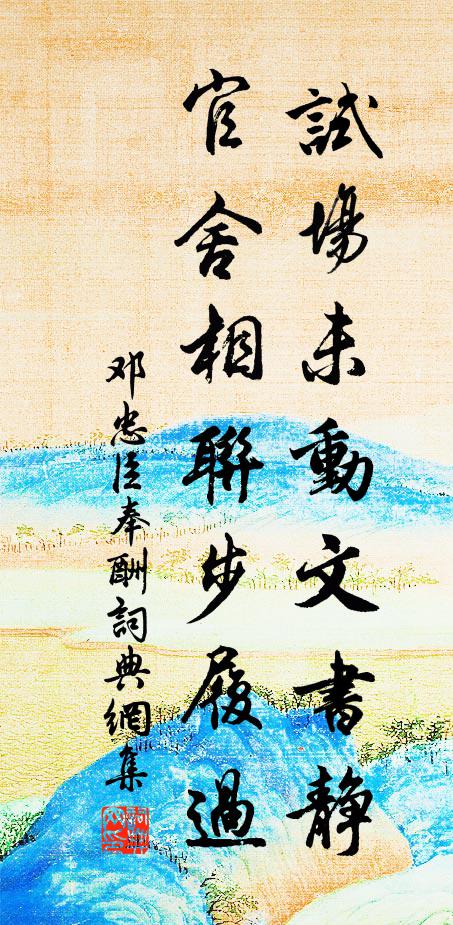 試場未動文書静
官舍相聯步履過
邓忠臣奉酬詞典網集